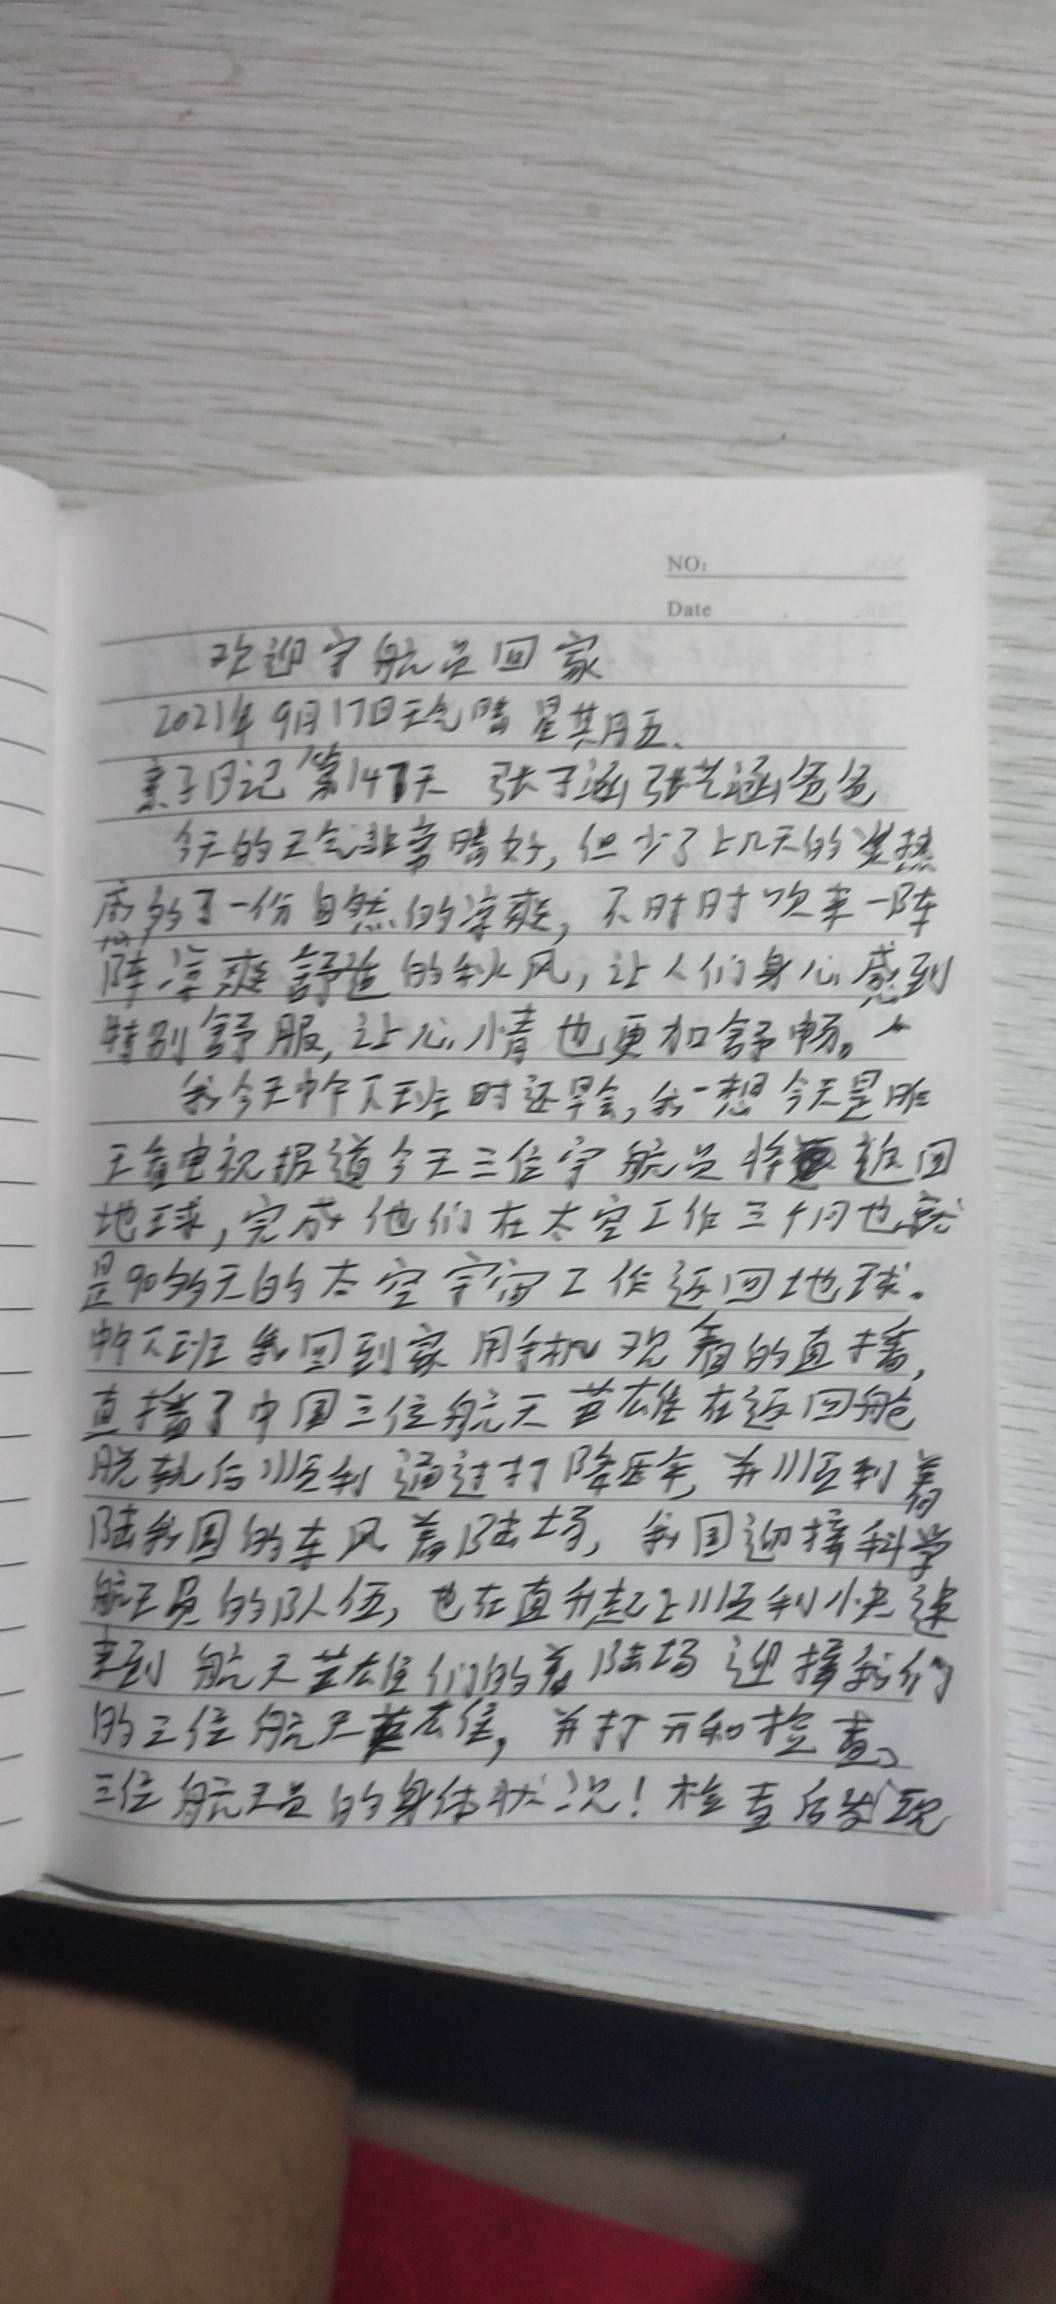 NO:
Date
欢迎宇航员回家
2021年9月17日天气晴 星其月五、
亲子日记 第147天 张子涵 张艺涵爸爸
今天的天气非常晴好,但少了上几天的炎热
感多了一份自然的凉爽,不时时吹来一阵
阵凉爽舒适的秋风,让人们身心感到
特别舒服,让心情也更加舒畅。
我今天中午下班时还早会,我一想今天是昨
天看电视报道今天三位宇航员将返回
地球,完成他们在太空工作三个月也就
是90多天的太空空间工作返回地球。
中午下班我回到家用手机观看的直播,
直播了中国三位航天英雄在返回舱
脱轨后顺利通过打降落伞,并顺利着
陆我国的东风着陆场,我国迎接科学
航天员的队伍,也在直升起上顺利快速
来到航天英雄们的着陆场迎接我们
的三位航天英雄,并打开和检查、
三位航天员的身体状况!检查后发现